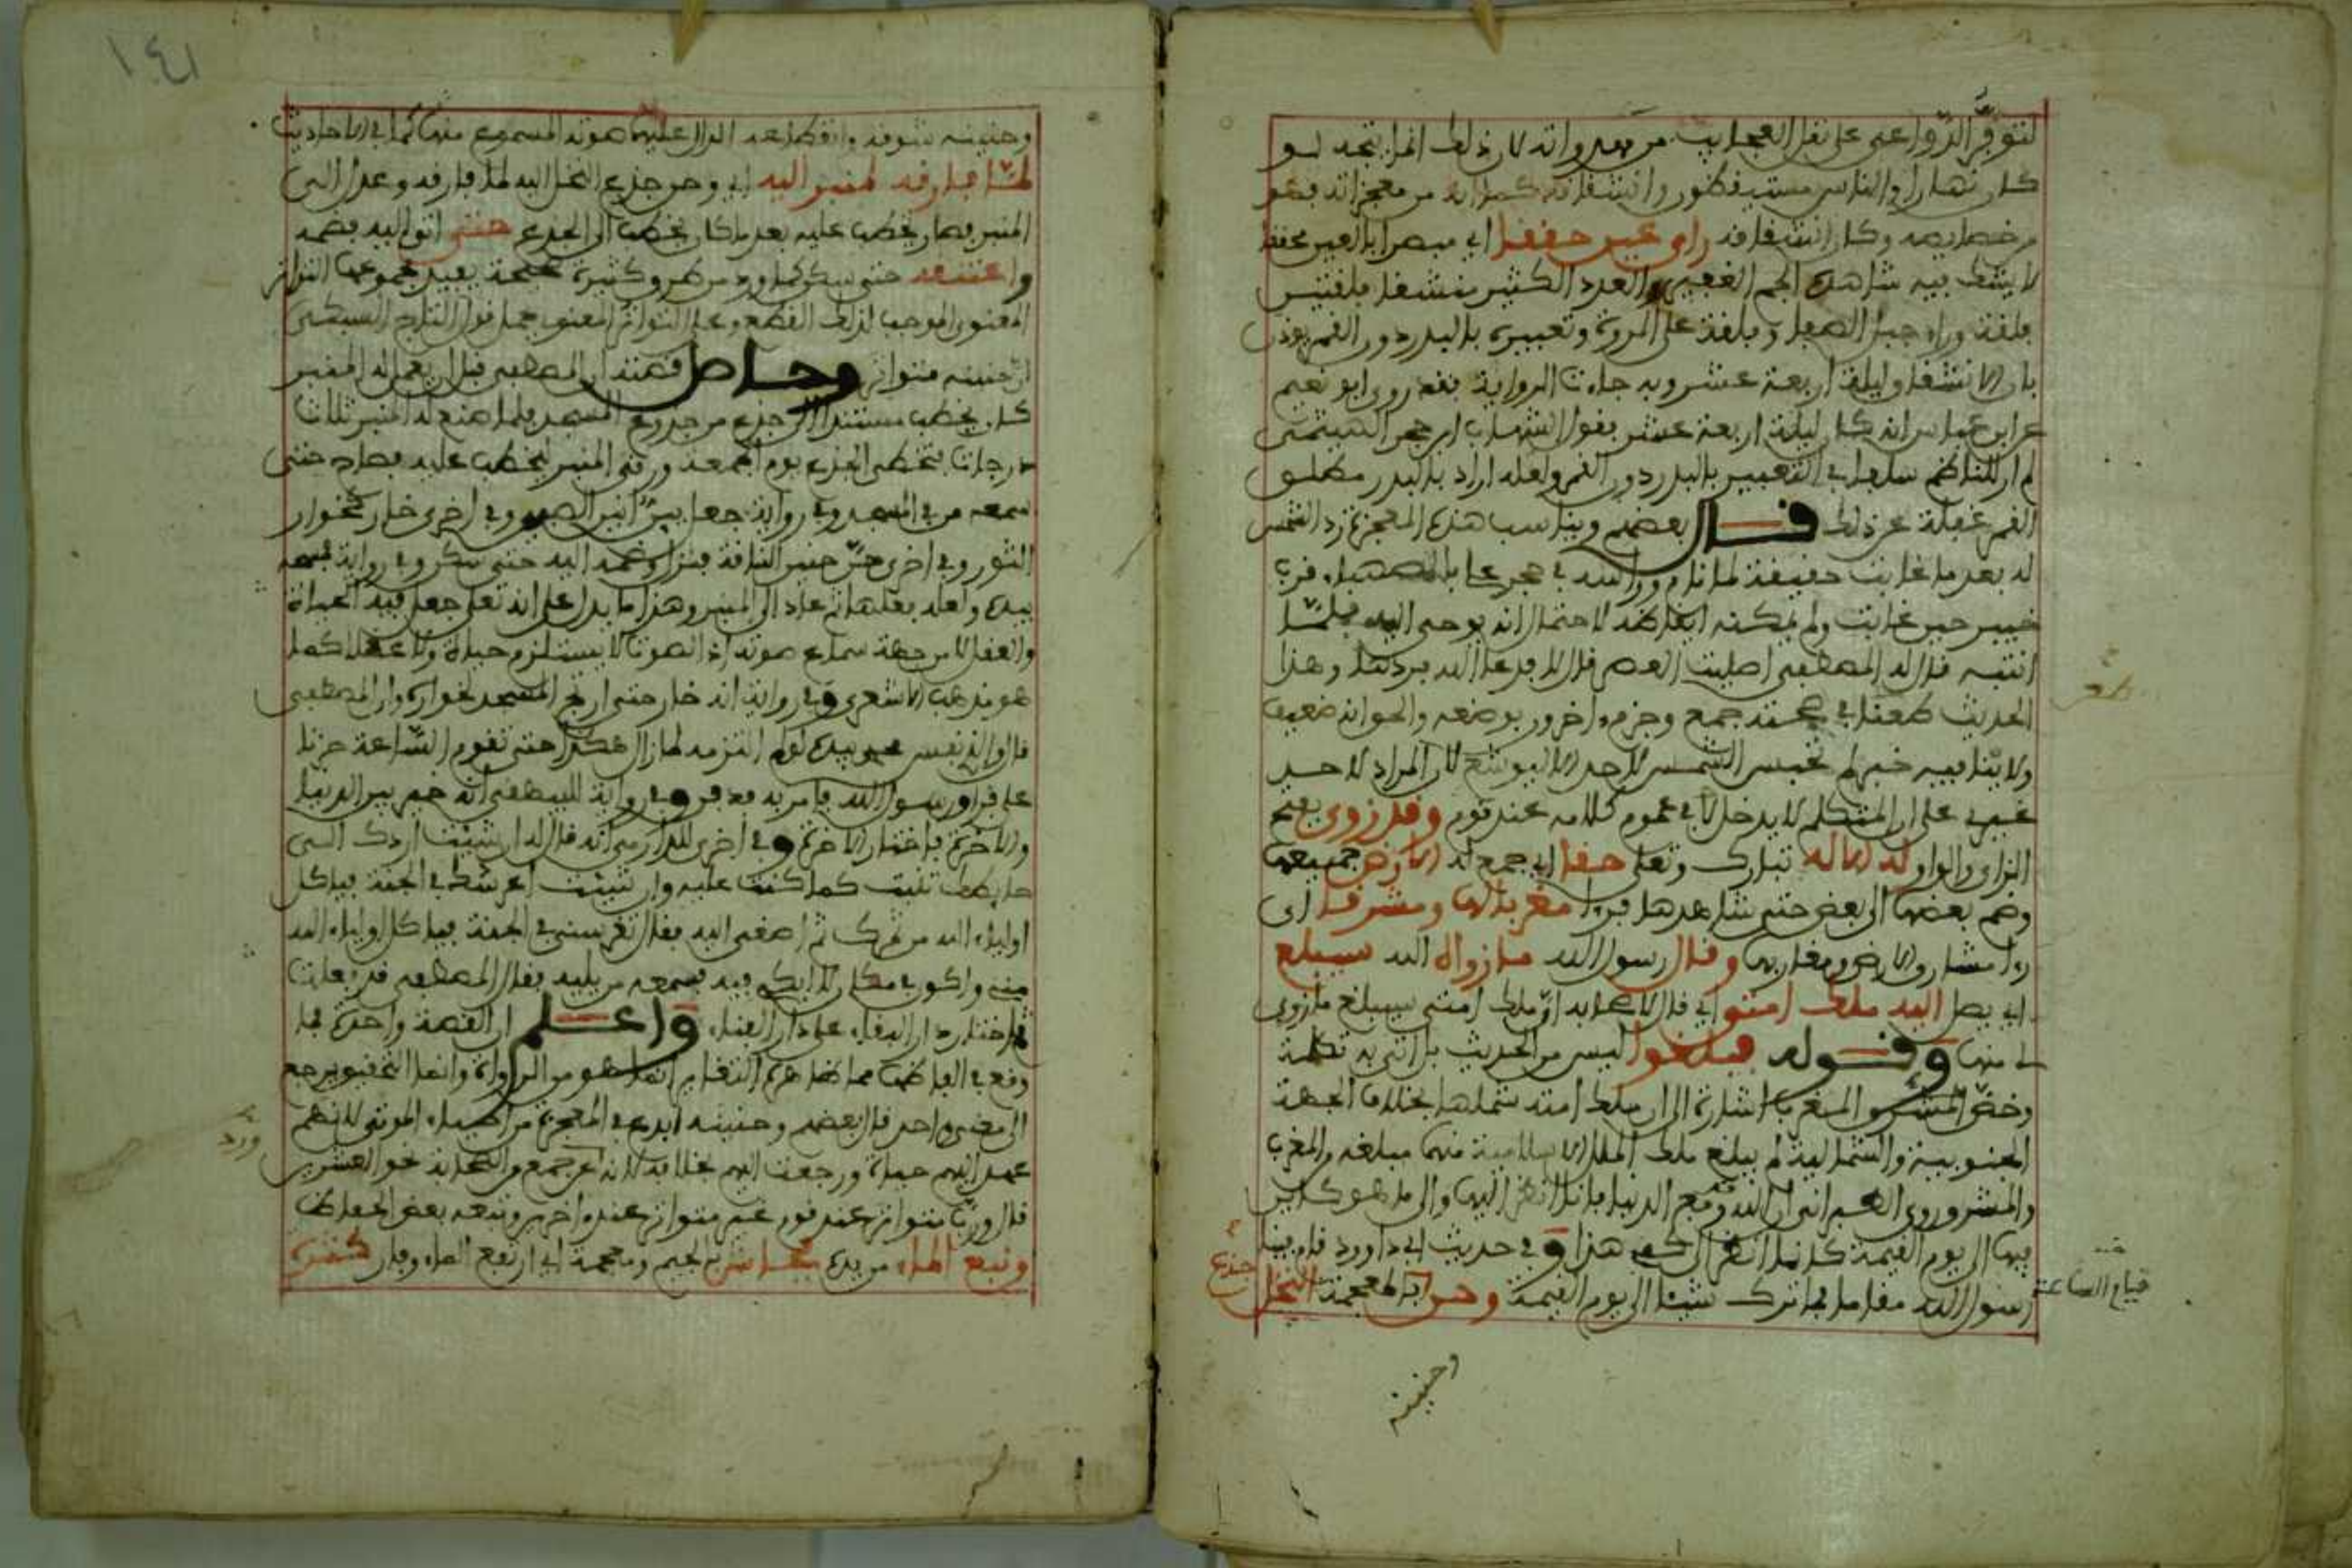 لتوفر الدواعي على نقل العجايب من بعد وانه لا ن ذلك انما يتجه لو
كان نهارا والناس مستيقظون وانشقاقه كما انه من معجزاته فهو
من خصايصه وكان انشقاقه راي عين حققا اي مبصرا بالعين محققا
لا يشك فيه شاهده الجم الغفير والعدد الكثير منشقا فلقتين
فلقة وراء جبل الصفا وفلقة على المروة وتعبيره بالبدر دون القمر يوذن
بان الانشقاق ليلة اربعة عشر وبه جاءت الرواية فقد روى ابو نعيم
عن ابن عباس انه كان ليلة اربعة عشر بقول الشهاب ابن حجر الهيتمي
لم ار للناظم سلفا في التعبير بالبدر دون القمر ولعله اراد بالبدر مطلق
القمر غفلة عن ذلك قال بعضهم ويناسب هذه المعجزة رد الشمس
له بعد ما غابت حقيقة لما نام وراسه في حجر علي بالصهباء قرب
خيبر حين غابت ولم يمكنه ايقاظه لاحتمال انه يوحى اليه فلما
انتبه قال له المصطفى اصليت العصر قال لا فدعا الله فردها وهذا
الحديث طعن في صحته جمع وجزم اخرون بوضعه والحق انه ضعيف
ولا ينافيه خبر لم تحبس الشمس لاحد الا ليوشع لان المراد لاحد
غيري على ان المتكلم لا يدخل في عموم كلامه عند قوم وقد زوى بفتح
الزاي والواو له الاله تبارك وتعلى حقا اي جمع له الارض جميعها
وضم بعضها الى بعض حتى شاهدها فرءا مغربا لها ومشرقا اي
رءا مشارق الارض ومغاربها وقال رسول الله ما زواه الله سيبلغ
اي يصل اليه ملك امتي اي قال لاصحابه ان ملك امتي سيبلغ ما زوي
لي منها وقوله فبلغوا ليس من الحديث بل اتى به تكملة
وخص المشرق والمغرب اشارة الى ان ملك امته شملها بخلاف الجهة
الجنوبية والشمالية لم يبلغ ملك الملة الاسلامية منها مبلغه والمغرب
والمشرق وروى الطبراني ان الله قد رفع الدنيا فانا انظر اليها والى ما هو كاين
فيها الى يوم القيمة كانما انظر الى كفي هذا وفي حديث ابي داوود قام فينا
رسول الله مقاما فما ترك شيئا الى يوم القيمة وحن بالمعجمة النخل
جذع
قيام الساعة
وحنينه
١٤١
وحنينه شوقه وانعطافه الدال عليهما صوته المسموع منها كما في الاحاديث
لما فارقه لمنبر اليه اي وحن جذع النخل اليه لما فارقه وعدل الى
المنبر فصار يخطب عليه بعد ما كان يخطب الى الجذع حتى اتى اليه فضمه
واعتنقه حتى سكن كما ورد من طرق كثيرة صحيحة يفيد مجموعها التواتر
المعنوي الموجب لذلك القطع وعلى التواتر المعنوي حمل قول التاج السبكي
ان حنينه متواتر وحاصل قصته ان المصطفى قبل ان يعمل له المنبر
كان يخطب مستندا الى جذع من جذوع المسجد فلما صنع له المنبر ثلاث
درجات تخطى الجذع يوم الجمعة ورقى المنبر ليخطب عليه فصاح حتى
سمعه من في المسجد وفي رواية جعل يئن انين الصبي وفي اخرى خار كخوار
الثور وفي اخرى حن حنين الناقة فنزل وضمه اليه حتى سكن وفي رواية فمسحه
بيده ولعله فعلهما ثم عاد الى المنبر وهذا ما يدل على انه تعلى جعل فيه الحياة
والعقل لا من جهة سماع صوته اذ الصوت لا يستلزم حياة ولا عقلا كما
هو مذهب الاشعري وفي رواية انه خار حتى ارتج المسجد لخواره وان المصطفى
قال والذي نفس محمد بيده لو لم التزمه لما زال هكذا حتى تقوم الساعة حزنا
على فراق رسول الله فامر به فدفن وفي رواية للبيهقي انه خير بين الدنيا
والاخرة فاختار الاخرة وفي اخرى للدارمي انه قال له ان شيئت اردك الى
حايطك تنبت كما كنت عليه وان شيئت اغرسك في الجنة فياكل
اولياء الله من ثمرك ثم اصغى اليه فقال تغرسني في الجنة فياكل اولياء الله
مني واكون في مكان لا ابلى فيه فسمعه من يليه فقال المصطفى قد فعلت
فاختار دار البقاء على دار الفناء واعلم ان القصة واحدة فما
وقع في الفاظها مما ظاهره التغاير انما هو من الرواة وانما التحقيق يرجع
الى معنى واحد قال بعضهم وحنينه ابدع في المعجزة من احياء الموتى لانهم
عهد اليهم حياة ورجعت اليهم بخلافه لانه عن جمع من الصحابة نحو العشرين
قال ورب متواتر عند قوم غير متواتر عند اخرين وتبعه بعض الحفاظ
ونبع الماء من يده بجاش بالجيم ومعجمة اي ارتفع الماء وفار كثرة
ورد